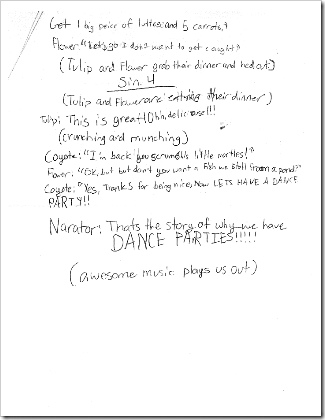 Get 1 big peice of lettes and 5 carrots."
Flower: "Let's go I don't want to get caught"
(Tulip and Flower grab their dinner and head out)
Sin. 4
(Tulip and Flower are eating their dinner)
Tulip: This is great! Oh in delicious!!!
(crunching and munching)
Coyote: "I'm back you scrumbls little mortles!"
Fower: "OK, but but don't you want a fish we stoll from a pond?"
Coyote: "Yes, Thanks for being nice, Now LETS HAVE A DANCE
PARTY!!
Narator: Thats the story of why we have
DANCE PARTIES!!!!!
(awesome music plays us out)